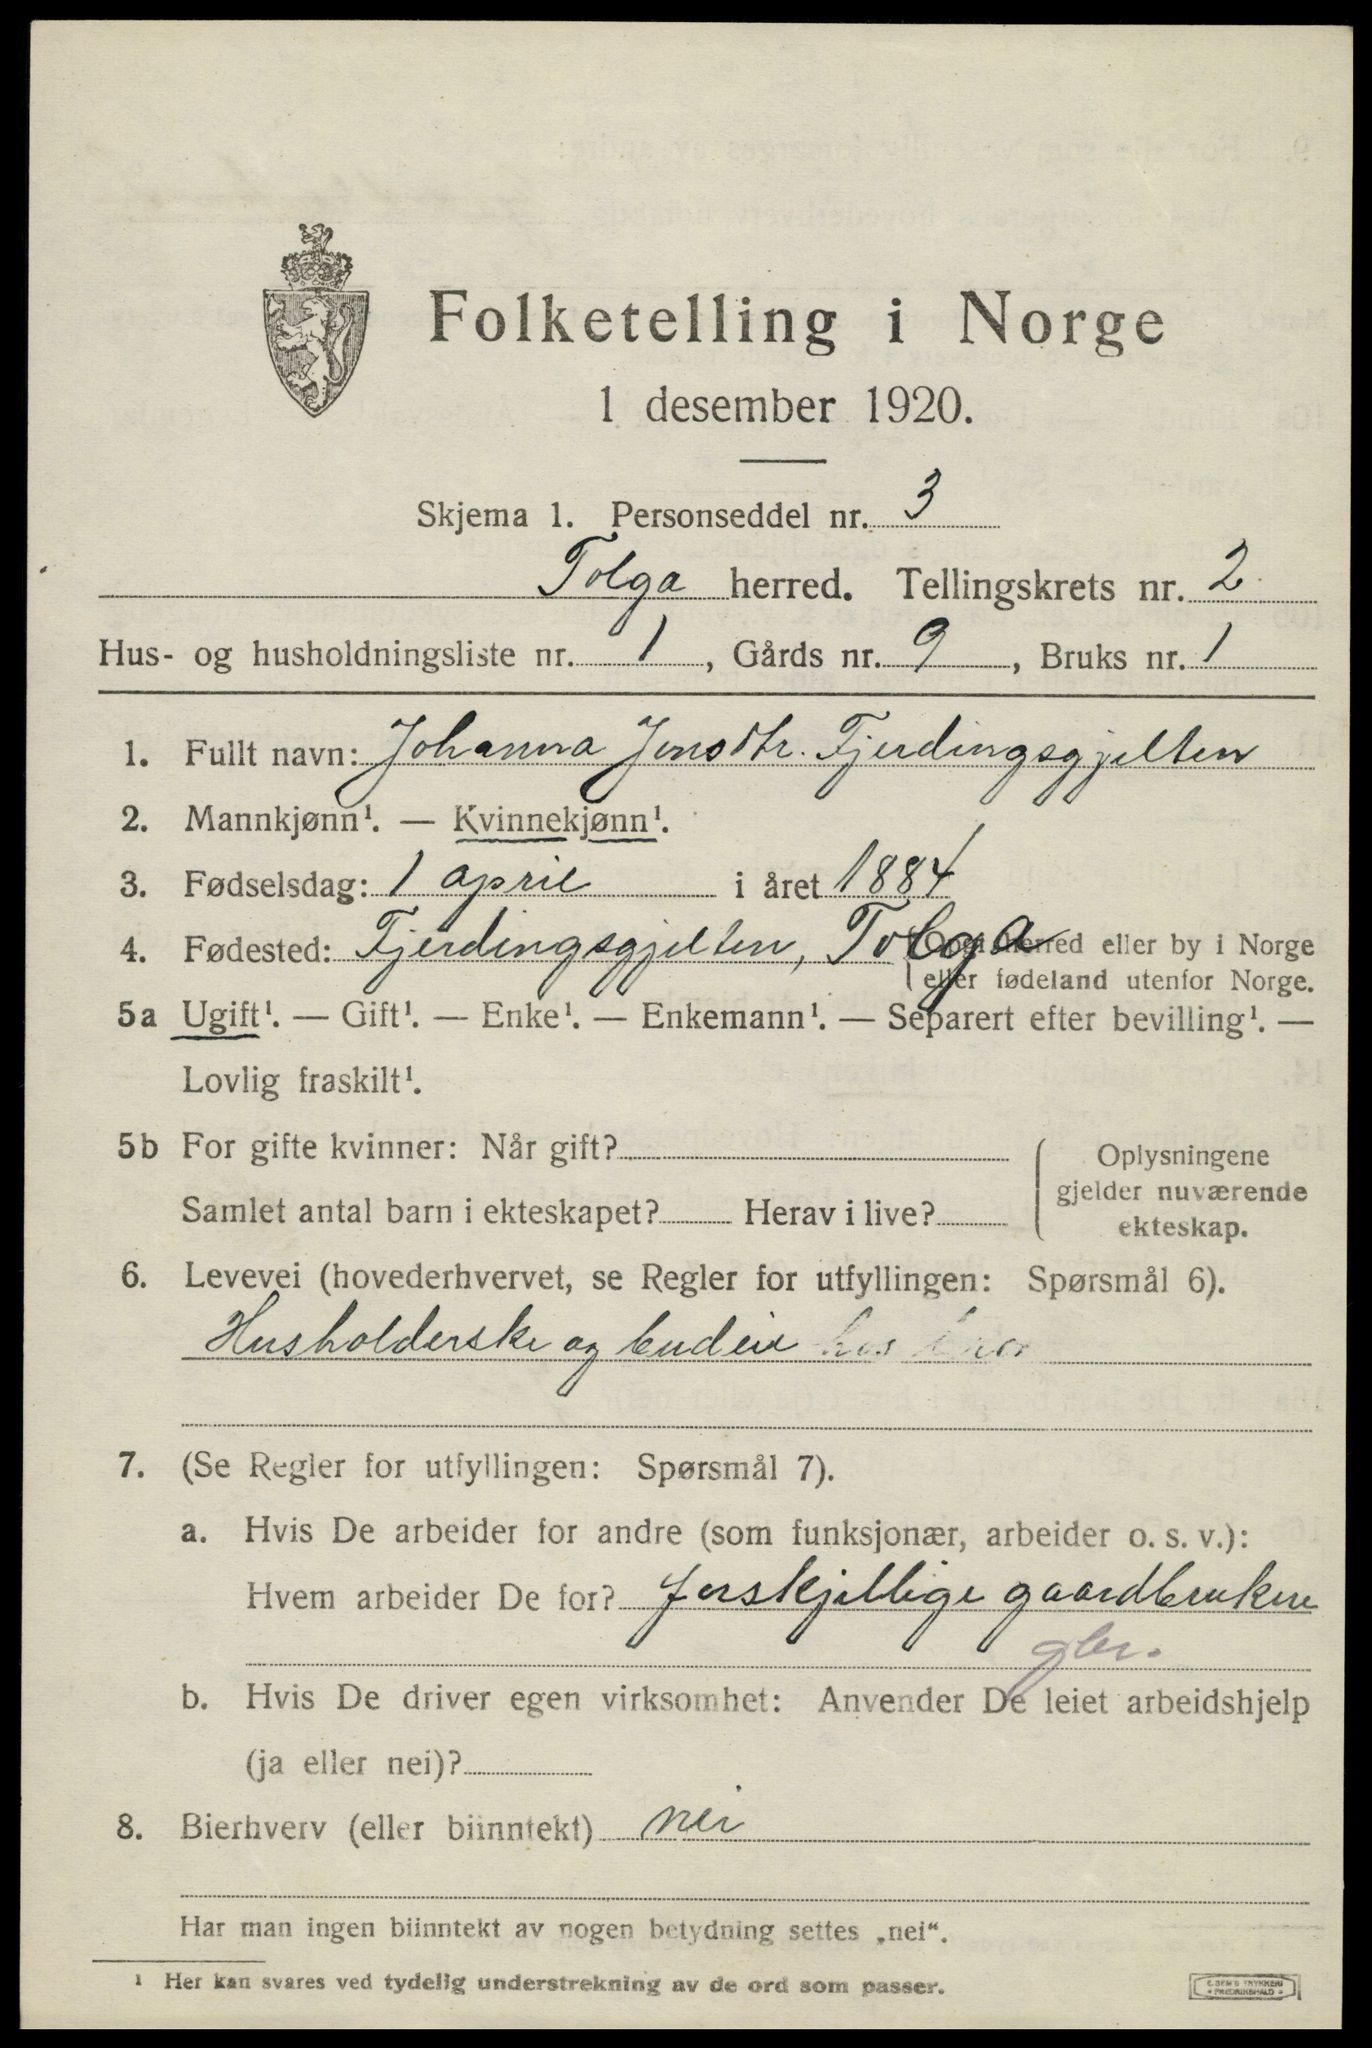 Folketelling i Norge
1 desember 1920.
Skjema 1. Personseddel nr. 3
Tolga herred. Tellingskrets nr. 2
Hus- og husholdningsliste nr. 1, Gårds nr. 9, Bruks nr. 1
1. Fullt navn: Johanna Jonsdtr. Fjerdingsgjelten
2. Mannkjønn¹. — Kvinnekjønn¹.
3. Fødselsdag: 1 april i året 1884
4. Fødested: Fjerdingsgjelten, Tolga (Opgi herred eller by i Norge
eller fødeland utenfor Norge.
5a Ugift¹. — Gift¹. — Enke¹. — Enkemann¹. — Separert efter bevilling¹. —
Lovlig fraskilt¹.
5b For gifte kvinner: Når gift?
Samlet antal barn i ekteskapet? Herav i live?
Oplysningene
gjelder nuværende
ekteskap.
6. Levevei (hovederhvervet, se Regler for utfyllingen: Spørsmål 6).
Husholderske og budeie hos bror
7. (Se Regler for utfyllingen: Spørsmål 7).
a. Hvis De arbeider for andre (som funksjonær, arbeider o. s. v.):
Hvem arbeider De for? forskjellige gaardbrukere
gbr.
b. Hvis De driver egen virksomhet: Anvender De leiet arbeidshjelp
(ja eller nei)?
8. Bierhverv (eller biinntekt) nei
Har man ingen biinntekt av nogen betydning settes „nei“.
¹ Her kan svares ved tydelig understrekning av de ord som passer.
E. SEM'S TRYKKERI
FREDRIKSHALD